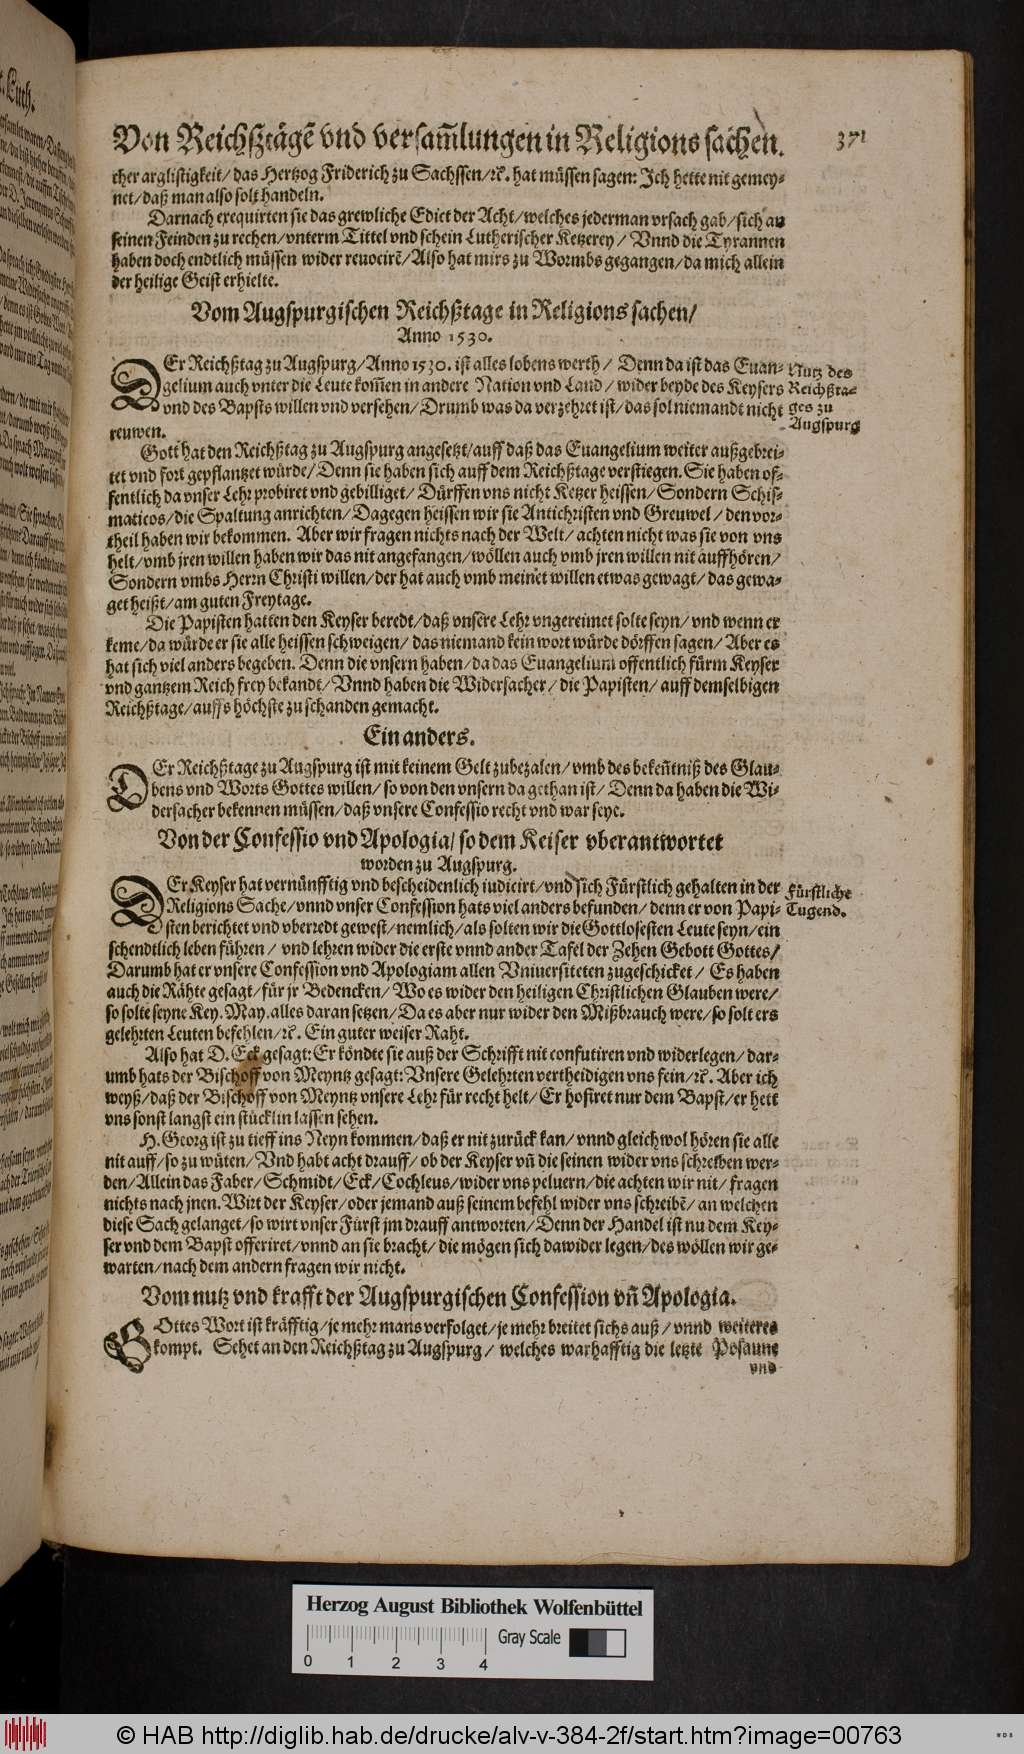 Von Reichßtägẽ vnd versam̃lungen in Religions sachen. 371
cher arglistigkeit/ das Hertzog Friderich zu Sachssen/ꝛc̃. hat müssen sagen: Ich hette nit gemey-
net/ daß man also solt handeln.
Darnach erequirten sie das grewliche Edict der Acht/ welches jederman vrsach gab/ sich an
seinen Feinden zu rechen/ vnterm Tittel vnd schein Lutherischer Ketzerey/ Vnnd die Tyrannen
haben doch endtlich müssen wider reuocirẽ/ Also hat mirs zu Wormbs gegangen/ da mich allein
der heilige Geist erhielte.
Vom Augspurgischen Reichßtage in Religions sachen/
Anno 1530.
DEr Reichßtag zu Augspurg/ Anno 1530. ist alles lobens werth/ Denn da ist das Euan-
gelium auch vnter die Leute kom̃en in andere Nation vnd Land/ wider beyde des Keysers
vnd des Bapsts willen vnd versehen/ Drumb was da verzehret ist/ das sol niemandt nicht
reuwen.
Nutz des
Reichßta-
ges zu
Augspurg
Gott hat den Reichßtag zu Augspurg angesetzt/ auff daß das Euangelium weiter außgebrei-
tet vnd fort gepflantzet würde/ Denn sie haben sich auff dem Reichßtage verstiegen. Sie haben of-
fentlich da vnser Lehr probiret vnd gebilliget/ Dürffen vns nicht Ketzer heissen/ Sondern Schis-
maticos/ die Spaltung anrichten/ Dagegen heissen wir sie Antichristen vnd Greuwel/ den vor-
theil haben wir bekommen. Aber wir fragen nichts nach der Welt/ achten nicht was sie von vns
helt/ vmb jren willen haben wir das nit angefangen/ wöllen auch vmb jren willen nit auffhören/
Sondern vmbs Herrn Christi willen/ der hat auch vmb meinet willen etwas gewagt/ das gewa-
get heißt/ am guten Freytage.
Die Papisten hatten den Keyser beredt/ daß vnsere Lehr vngereimet solte seyn/ vnd wenn er
keme/ da würde er sie alle heissen schweigen/ das niemand kein wort würde dörffen sagen/ Aber es
hat sich viel anders begeben. Denn die vnsern haben/ da das Euangelium offentlich fürm Keyser
vnd gantzem Reich frey bekandt/ Vnnd haben die Widersacher/ die Papisten/ auff demselbigen
Reichßtage/ auffs höchste zu schanden gemacht.
Ein anders.
DEr Reichßtage zu Augspurg ist mit keinem Gelt zubezalen/ vmb des bekeñtniß des Glau-
bens vnd Worts Gottes willen/ so von den vnsern da gethan ist/ Denn da haben die Wi-
dersacher bekennen müssen/ daß vnsere Confessio recht vnd war seye.
Von der Confessio vnd Apologia/ so dem Keiser vberantwortet
worden zu Augspurg.
DEr Keyser hat vernünfftig vnd bescheidenlich iudicirt/ vnd sich Fürstlich gehalten in der
Religions Sache/ vnnd vnser Confession hats viel anders befunden/ denn er von Papi-
sten berichtet vnd vberredt gewest/ nemlich/ als solten wir die Gottlosesten Leute seyn/ ein
schendtlich leben führen/ vnd lehren wider die erste vnnd ander Tafel der Zehen Gebott Gottes/
Darumb hat er vnsere Confession vnd Apologiam allen Vniuersiteten zugeschicket/ Es haben
auch die Rähte gesagt/ für jr Bedencken/ Wo es wider den heiligen Christlichen Glauben were/
so solte seyne Key. May. alles daran setzen/ Da es aber nur wider den Mißbrauch were/ so solt ers
gelehrten Leuten befehlen/ꝛc̃. Ein guter weiser Raht.
Fürstliche
Tugend.
Also hat D. Eck gesagt: Er köndte sie auß der Schrifft nit confutiren vnd widerlegen/ dar-
umb hats der Bischoff von Meyntz gesagt: Vnsere Gelehrten vertheidigen vns fein/ꝛc̃. Aber ich
weyß/ daß der Bischoff von Meyntz vnsere Lehr für recht helt/ Er hofiret nur dem Bapst/ er hett
vns sonst langst ein stücklin lassen sehen.
H. Georg ist zu tieff ins Neyn kommen/ daß er nit zurück kan/ vnnd gleichwol hören sie alle
nit auff/ so zu wüten/ Vnd habt acht drauff/ ob der Keyser vñ die seinen wider vns schreiben wer-
den/ Allein das Faber/ Schmidt/ Eck/ Cochleus/ wider vns peluern/ die achten wir nit/ fragen
nichts nach jnen. Wirt der Keyser/ oder jemand auß seinem befehl wider vns schreibẽ/ an welchen
diese Sach gelanget/ so wirt vnser Fürst jm drauff antworten/ Denn der Handel ist nu dem Key-
ser vnd dem Bapst offeriret/ vnnd an sie bracht/ die mögen sich dawider legen/ des wöllen wir ge-
warten/ nach dem andern fragen wir nicht.
Vom nutz vnd krafft der Augspurgischen Confession vñ Apologia.
GOttes Wort ist kräfftig/ je mehr mans verfolget/ je mehr breitet sichs auß/ vnnd weiteres
kompt. Sehet an den Reichßtag zu Augspurg/ welches warhafftig die letzte Posaune
vnd
Herzog August Bibliothek Wolfenbüttel
0 1 2 3 4 Gray Scale
© HAB http://diglib.hab.de/drucke/alv-v-384-2f/start.htm?image=00763